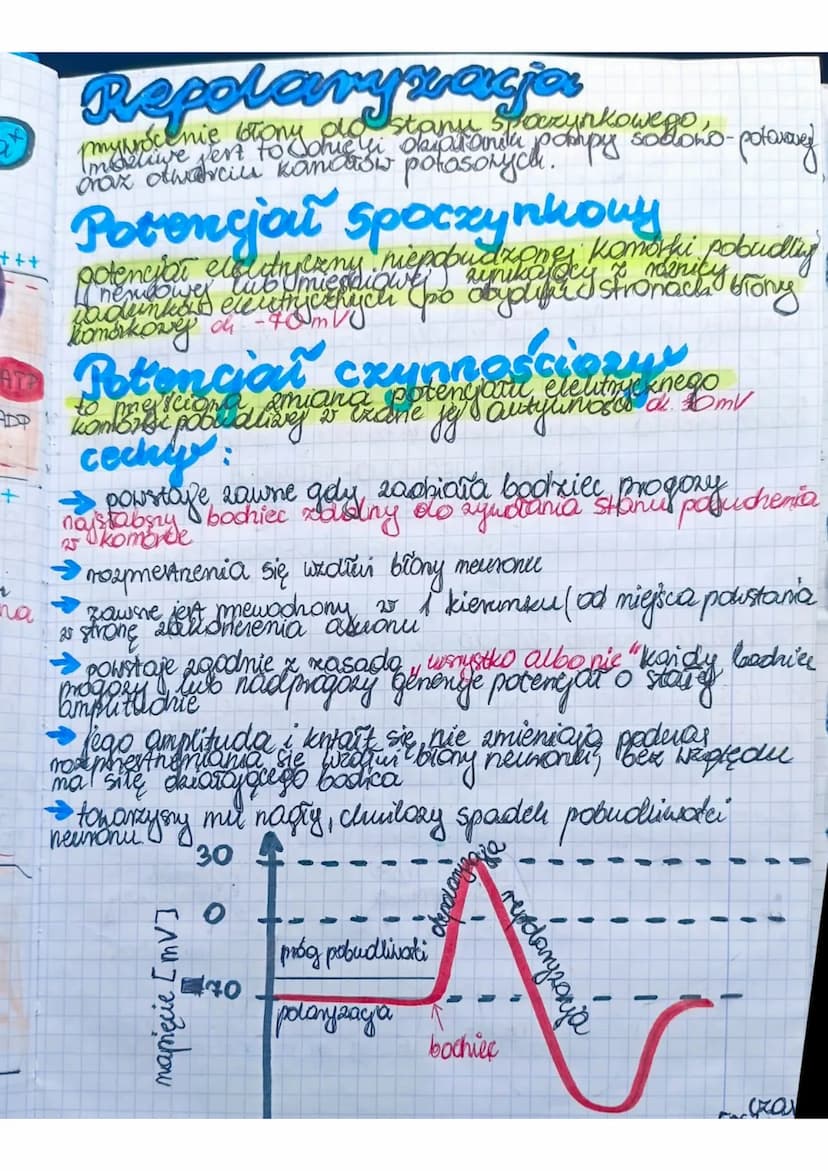 Repolaryzacja
przywrócenie błony do stanu spoczynkowego,
możliwe jest to dzięki działaniu pompy sodowo-potasowej
oraz otwarciu kanałów potasowych.
Potencjał spoczynkowy
potencjał elektryczny niepobudzonej komórki pobudliwej
(nerwowej lub mięśniowej) wynikający z różnicy
ładunków elektrycznych po obydwu stronach błony
komórkowej ok -70 mV
Potencjał czynnościowy
to przejściowa zmiana potencjału elektrycznego
komórki pobudliwej w czasie jej aktywności ok. 30mV
cechy:
→ powstaje zawsze gdy zadziała bodziec progowy
najsłabszy bodziec zdolny do wywołania stanu pobudzenia
w komórce
→ rozprzestrzenia się wzdłuż błony neuronu
→ zawsze jest przewodzony w 1 kierunku (od miejsca powstania
w stronę zakończenia aksonu
→ powstaje zgodnie z zasadą „wszystko albo nic" każdy bodziec
progowy lub nadprogowy generuje potencjał o stałej
amplitudzie
→ jego amplituda i kształt się nie zmieniają podczas
rozprzestrzeniania się wzdłuż błony neuronu, bez względu
na siłę działającego bodźca
→ towarzyszy mu nagły, chwilowy spadek pobudliwości
neuronu
30
0
-70
napięcie [mV]
próg pobudliwości
polaryzacja
bodziec
depolaryzacja
repolaryzacja
czas
ATP
ADP
na